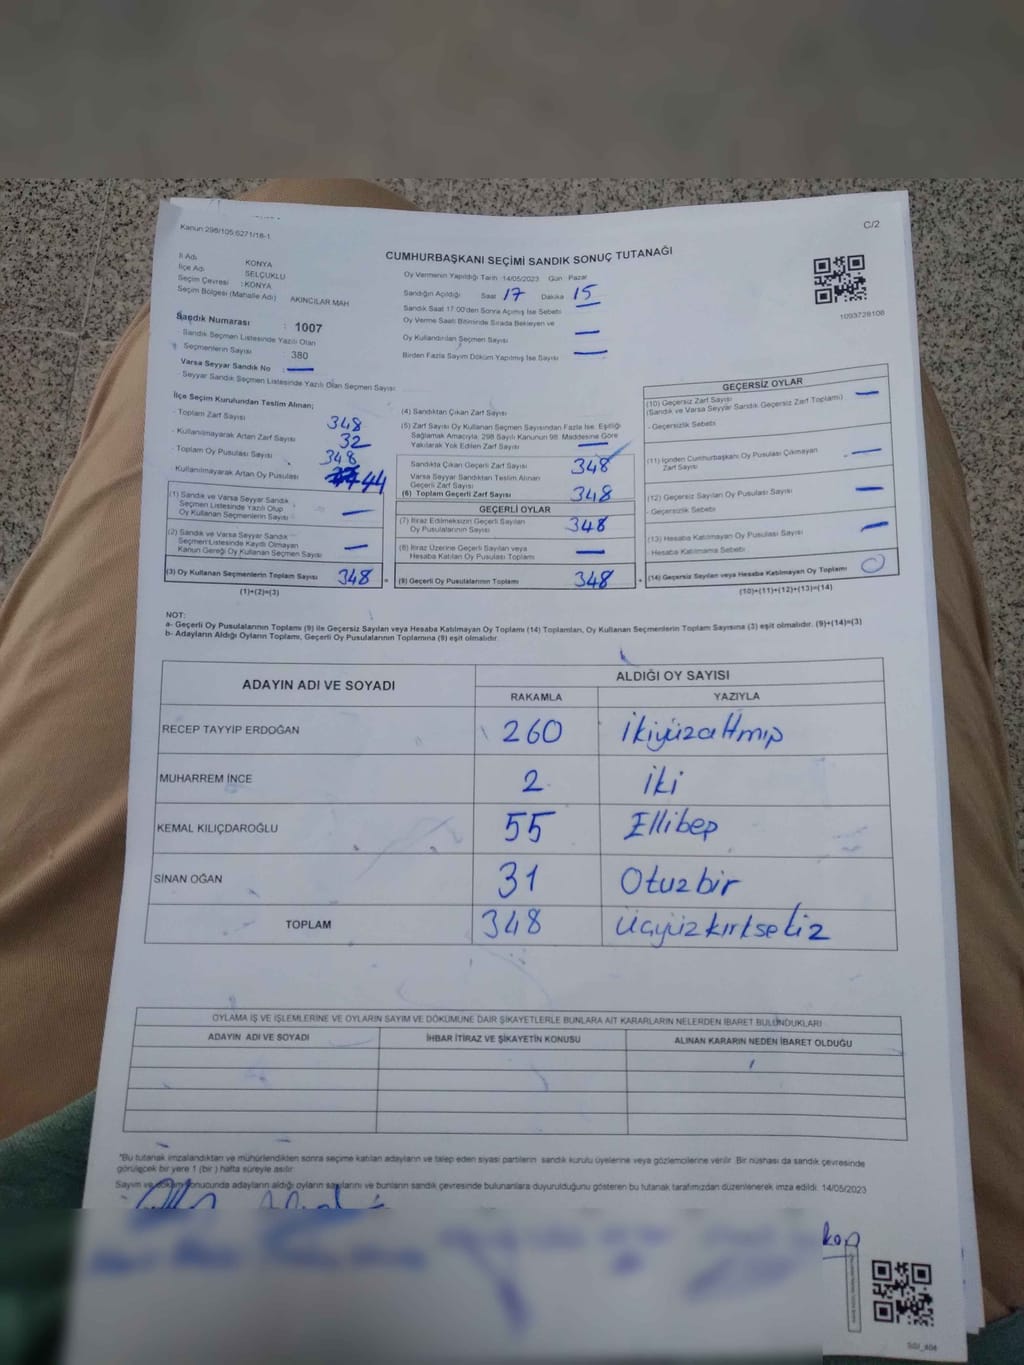 Kanun 298/105;6271/18-1
C/2
CUMHURBAŞKANI SEÇİMİ SANDIK SONUÇ TUTANAĞI
İl Adı KONYA
İlçe Adı SELÇUKLU
Seçim Çevresi : KONYA
Seçim Bölgesi (Mahalle Adı) AKINCILAR MAH
Sandık Numarası : 1007
- Sandık Seçmen Listesinde Yazılı Olan
Seçmenlerin Sayısı : 380
Varsa Seyyar Sandık No : —
- Seyyar Sandık Seçmen Listesinde Yazılı Olan Seçmen Sayısı
Oy Vermenin Yapıldığı Tarih :14/05/2023 Gün : Pazar
Sandığın Açıldığı Saat 17 Dakika 15
Sandık Saat 17:00'den Sonra Açılmış İse Sebebi
Oy Verme Saati Bitiminde Sırada Bekleyen ve
Oy Kullandırılan Seçmen Sayısı —
Birden Fazla Sayım Döküm Yapılmış İse Sayısı —
1093728108
İlçe Seçim Kurulundan Teslim Alınan;
- Toplam Zarf Sayısı 348
- Kullanılmayarak Artan Zarf Sayısı 32
- Toplam Oy Pusulası Sayısı 348
- Kullanılmayarak Artan Oy Pusulası 44
(1) Sandık ve Varsa Seyyar Sandık
Seçmen Listesinde Yazılı Olup
Oy Kullanan Seçmenlerin Sayısı —
(2) Sandık ve Varsa Seyyar Sandık
Seçmen Listesinde Kayıtlı Olmayan
Kanun Gereği Oy Kullanan Seçmen Sayısı —
(3) Oy Kullanan Seçmenlerin Toplam Sayısı 348 =
(1)+(2)=(3)
(4) Sandıktan Çıkan Zarf Sayısı
(5) Zarf Sayısı Oy Kullanan Seçmen Sayısından Fazla İse, Eşitliği
Sağlamak Amacıyla, 298 Sayılı Kanunun 98. Maddesine Göre
Yakılarak Yok Edilen Zarf Sayısı —
Sandıkta Çıkan Geçerli Zarf Sayısı 348
Varsa Seyyar Sandıktan Teslim Alınan
Geçerli Zarf Sayısı
(6) Toplam Geçerli Zarf Sayısı 348
GEÇERLİ OYLAR
(7) İtiraz Edilmeksizin Geçerli Sayılan
Oy Pusulalarının Sayısı 348
(8) İtiraz Üzerine Geçerli Sayılan veya
Hesaba Katılan Oy Pusulası Toplamı —
(9) Geçerli Oy Pusulalarının Toplamı 348 +
GEÇERSİZ OYLAR
(10) Geçersiz Zarf Sayısı —
(Sandık ve Varsa Seyyar Sandık Geçersiz Zarf Toplamı)
- Geçersizlik Sebebi
(11) İçinden Cumhurbaşkanı Oy Pusulası Çıkmayan
Zarf Sayısı —
(12) Geçersiz Sayılan Oy Pusulası Sayısı —
- Geçersizlik Sebebi
(13) Hesaba Katılmayan Oy Pusulası Sayısı —
Hesaba Katılmama Sebebi
(14) Geçersiz Sayılan veya Hesaba Katılmayan Oy Toplamı 0
(10)+(11)+(12)+(13)=(14)
NOT:
a- Geçerli Oy Pusulalarının Toplamı (9) ile Geçersiz Sayılan veya Hesaba Katılmayan Oy Toplamı (14) Toplamları, Oy Kullanan Seçmenlerin Toplam Sayısına (3) eşit olmalıdır. (9)+(14)=(3)
b- Adayların Aldığı Oyların Toplamı, Geçerli Oy Pusulalarının Toplamına (9) eşit olmalıdır.
ADAYIN ADI VE SOYADI ALDIĞI OY SAYISI
RAKAMLA YAZIYLA
RECEP TAYYİP ERDOĞAN 260 İkiyüzaltmış
MUHARREM İNCE 2 İki
KEMAL KILIÇDAROĞLU 55 Ellibeş
SİNAN OĞAN 31 Otuzbir
TOPLAM 348 Üçyüzkırksekiz
OYLAMA İŞ VE İŞLEMLERİNE VE OYLARIN SAYIM VE DÖKÜMÜNE DAİR ŞİKAYETLERLE BUNLARA AİT KARARLARIN NELERDEN İBARET BULUNDUKLARI
ADAYIN ADI VE SOYADI İHBAR İTİRAZ VE ŞİKAYETİN KONUSU ALINAN KARARIN NEDEN İBARET OLDUĞU
"Bu tutanak imzalandıktan ve mühürlendikten sonra seçime katılan adayların ve talep eden siyasi partilerin sandık kurulu üyelerine veya gözlemcilerine verilir. Bir nüshası da sandık çevresinde
görülecek bir yere 1 (bir) hafta süreyle asılır.
Sayım ve döküm sonucunda adayların aldığı oyların sayılarını ve bunların sandık çevresinde bulunanlara duyurulduğunu gösteren bu tutanak tarafımızdan düzenlenerek imza edildi. 14/05/2023